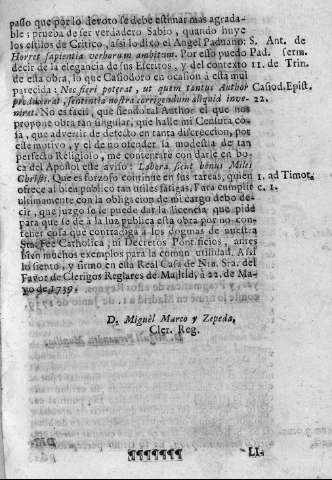 passo que por lo devoto se debe estimar mas agrada-
ble; prueba de ser verdadero Sabio, quando huye
los estilos de Critico, assi lo dixo el Angel Paduano: S. Ant. de
Horret sapientia verborum ambitum. Por esso puedo Pad. serm.
decir de la elegancia de sus Escritos, y del contexto 11. de Trin.
de esta obra, lo que Casiodoro en ocasion à esta mui
parecida: Nec fieri poterat, ut quem tantus Author Casiod. Epist.
producerat, sententia nostra corrigendum aliquid inve- 22.
niret. No es facil, que siendo tal Author el que nos
propone obra tan singular, que halle mi Censura co-
sa, que advertir de defecto en tanta discreccion, por
este motivo, y el de no ofender la modestia de tan
perfecto Religioso, me contentarè con darle en bo-
ca del Apostol este aviso: Labora sicut bonus Miles
Christi. Que es forzoso continue en sus tareas, quien 1. ad Timot.
ofrece al bien publico tan utiles fatigas. Para cumplir c. 1.
ultimamente con la obligacion de mi cargo debo de-
cir, que juzgo se le puede dar la licencia, que pide
para que se dè à la luz publica esta obra por no con-
tener cosa que contradiga à los dogmas de nuestra
Sta. Feè Catholica, ni Decretos Pontificios, antes
bien muchos exemplos para la comun utilidad. Assi
lo siento, y firmo en esta Real Casa de Nra. Sra. del
Favor de Clerigos Reglares de Madrid, à 22. de Ma-
yo de 1739.
D. Miguèl Marco y Zepeda,
Cler. Reg.
¶¶¶¶¶¶¶ LI-